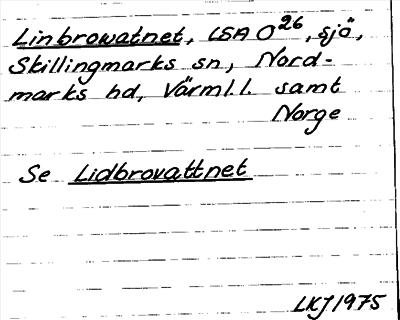 Linbrowatnet, LSA O26, sjö,
Skillingmarks sn, Nord-
marks hd, Värml.l. samt
Norge
Se Lidbrovattnet
LKJ 1975